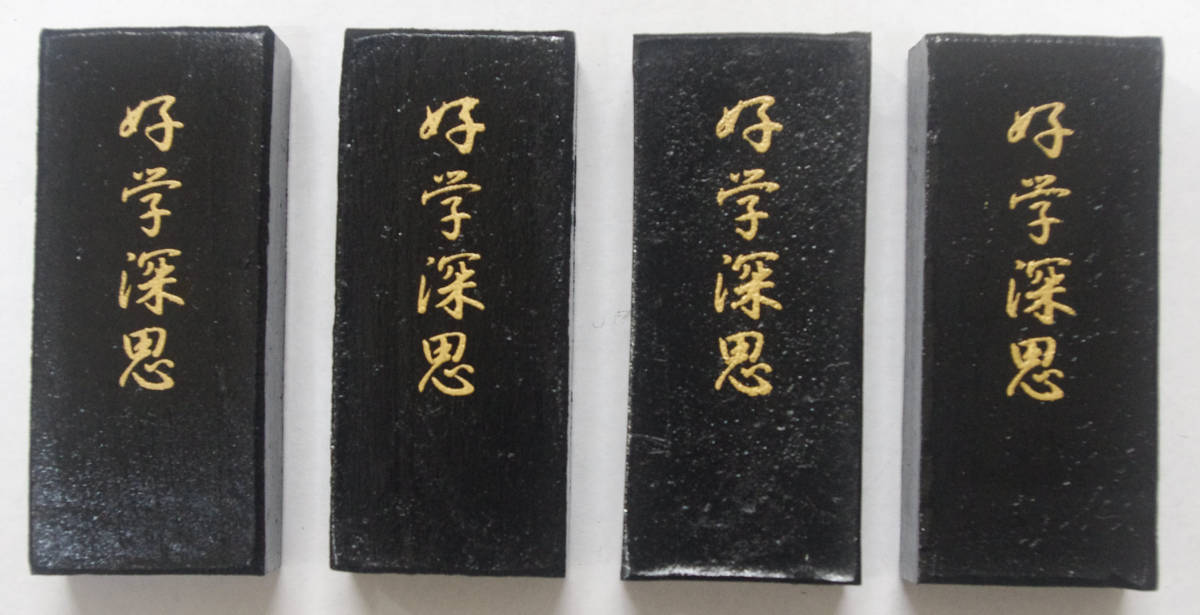 好学深思
好学深思
好学深思
好学深思